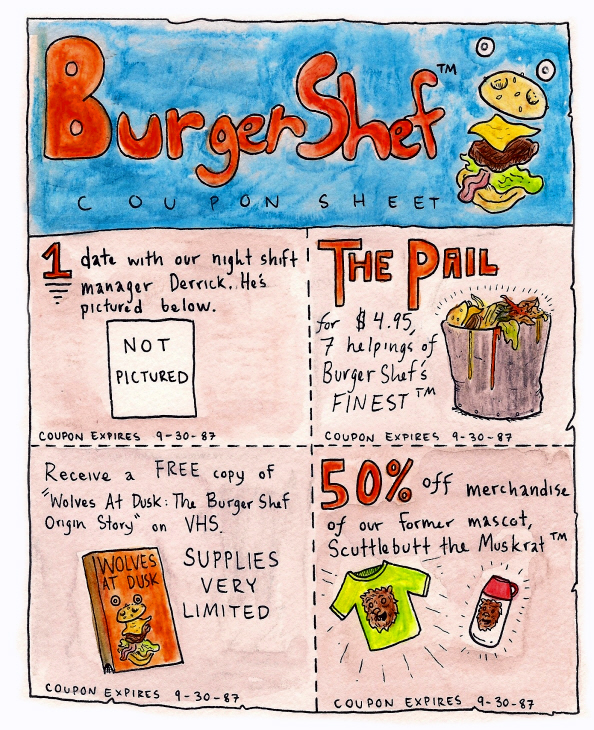 BurgerShef™
COUPON SHEET
1 date with our night shift
manager Derrick. He's
pictured below.
NOT
PICTURED
COUPON EXPIRES 9-30-87
THE PAIL
for $4.95,
7 helpings of
Burger Shef's
FINEST™
COUPON EXPIRES 9-30-87
Receive a FREE copy of
"Wolves At Dusk: The Burger Shef
Origin Story" on VHS.
WOLVES
AT DUSK
SUPPLIES
VERY
LIMITED
COUPON EXPIRES 9-30-87
50% off merchandise
of our former mascot,
Scuttlebutt the Muskrat™
COUPON EXPIRES 9-30-87